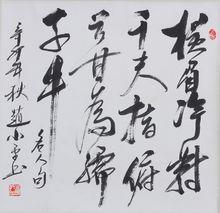 横眉冷对
千夫指俯
首甘为孺
子牛
名人句
秋赵小石书